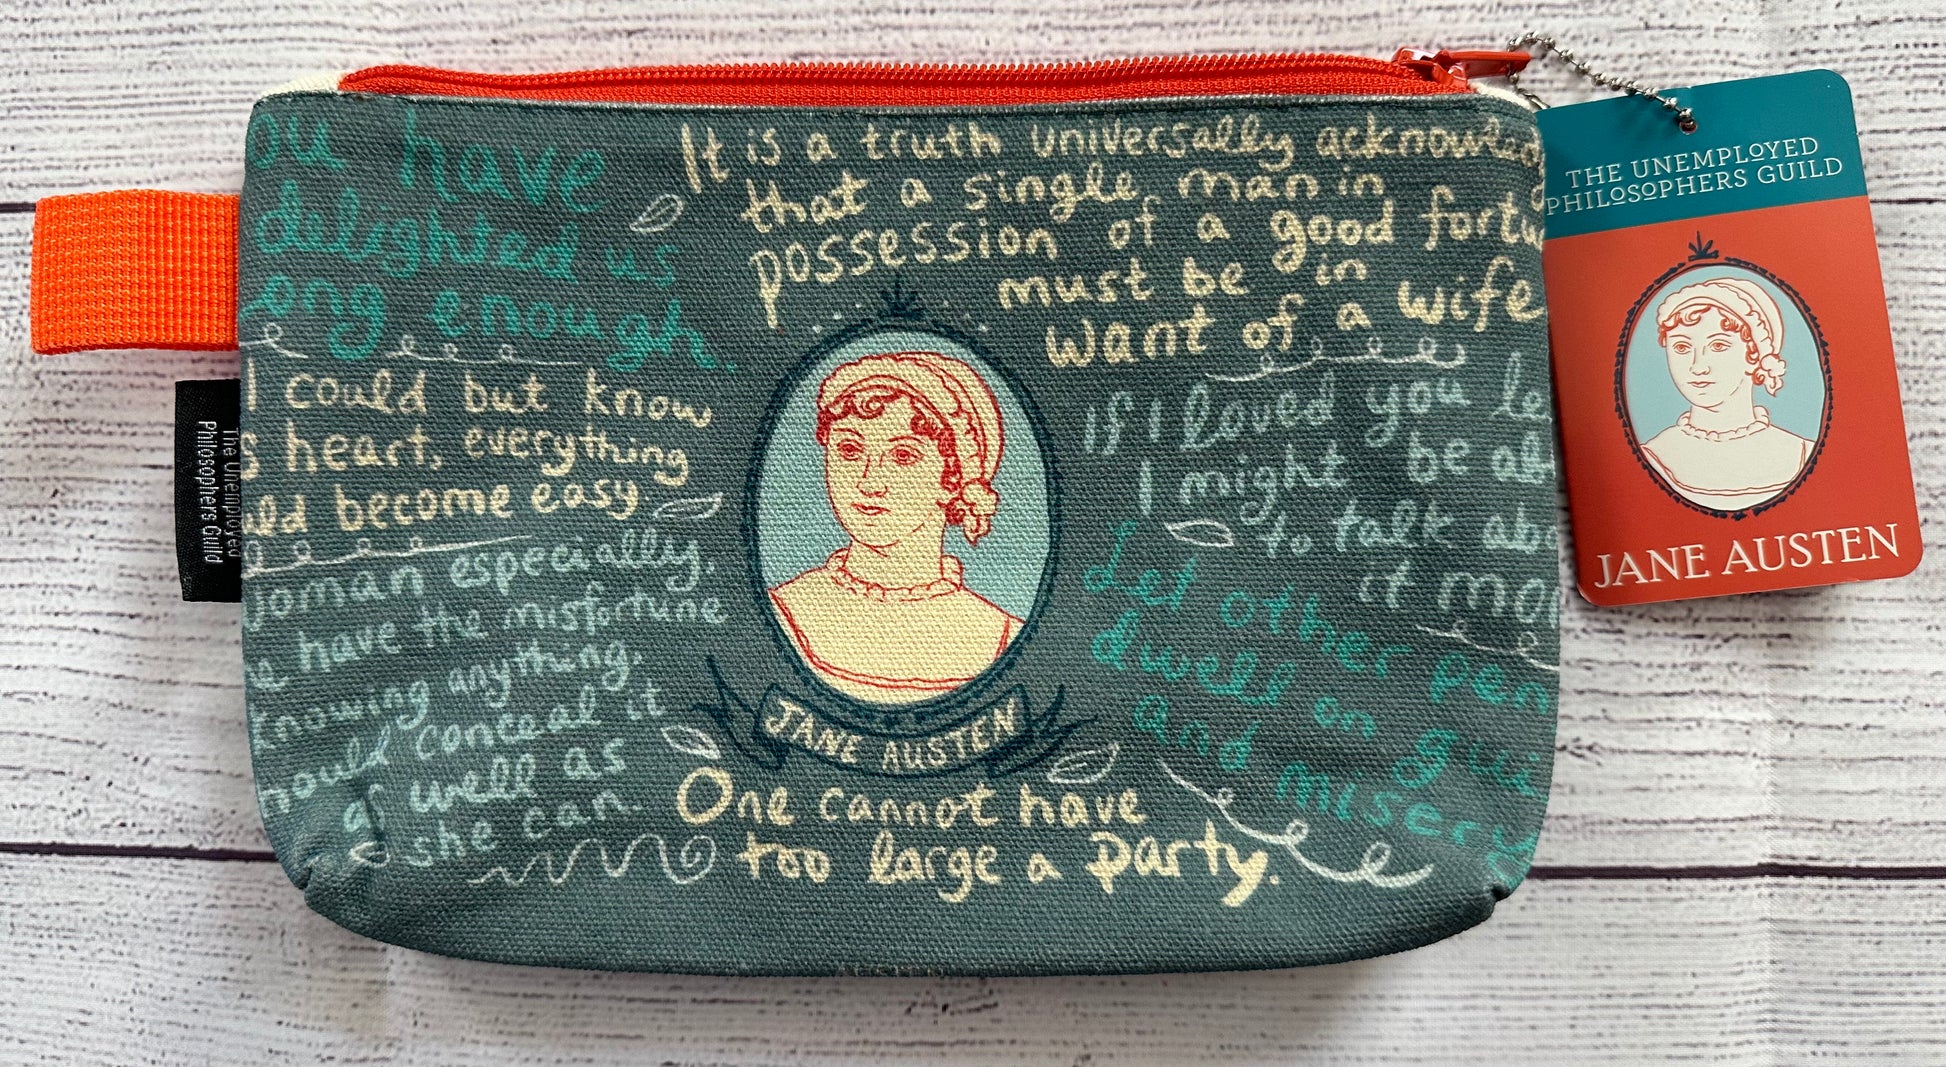 ou have
delighted us
ong enough.
I could but know
s heart, everything
uld become easy
woman especially.
e have the misfortune
knowing anything.
hould conceal it
as well as
she can.
It is a truth universally acknowledg
that a single man in
possession of a good fortu
must be in
want of a wife
If I loved you le
I might be ab
to talk abo
it mor
Let other pen
dwell on gui
and misery
JANE AUSTEN
One cannot have
too large a party.
The Unemployed
Philosophers Guild
THE UNEMPLOYED
PHILOSOPHERS GUILD
JANE AUSTEN